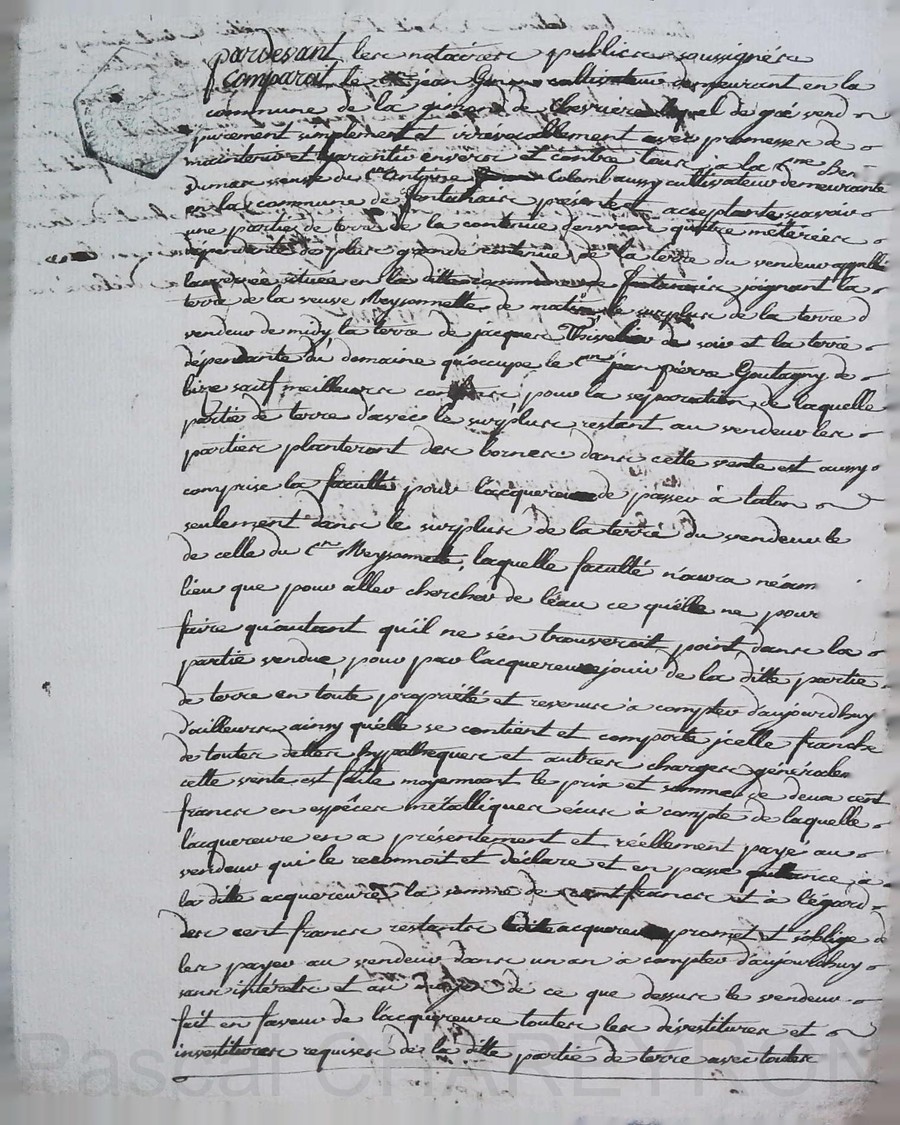 pardevant les notaires publics soussignés
comparait le jean cultivateur demeurant en la
commune de la de Chevrieres lequel de gré vend
purement simplement et irrevocablement avec promesse de
maintenir et garantir envers et contre tous a la
Dumas veuve du Colombaussy cultivateur demeurante
en la commune de fontanais presente et acceptante scavoir
une partie de terre de la contenue d'environ quatre métérées
dépendante de plus grande contenue de la terre du vendeur appellé
située en la ditte commune de fontanais joignant la
terre de la veuve Meyssonnette de matin le surplus de la terre d
vendeur de midy la terre de jacques de soir et la terre
dépendante du domaine qu'occupe le cen jean pierre Goutagny de
bize sauf meilleurs pour la séparation de laquelle
partie de terre d'avec le surplus restant au vendeur les
parties planteront des bornes dans cette vente est aussy
comprise la faculté pour l'acquereure de passer à talon
seulement dans le surplus de la terre du vendeur le
de celle du cen Meyssonnette, laquelle faculté n'aura néam
lieu que pour aller chercher de l'eau ce quélle ne pour
faire qu'autant qu'il ne s'en trouveroit point dans la
partie vendue pour par l'acquereure jouir de la ditte partie
de terre en toute propriété et revenus à compter d'aujourdhuy
d'ailleurs ainsy quélle se contient et comporte jcelle franche
de toutes dettes hypotheques et autres charges générales
cette vente est faite moyennant le prix et somme de deux cent
francs en espèces métalliques écus à compte de laquelle
l'acquereure en a présentement et réellement payé au
vendeur qui le reconnoit et déclare et en passe quittance à
la ditte acquereure la somme de cent francs et à l'égard
des cent francs restants laditte acquereure promet et s'oblige d
les payer au vendeur dans un an a compter d'aujourdhuy
sans intérets et au moyen de ce que dessus le vendeur
fait en faveur de l'acquereure toutes les dévestitures et
investitures requises de la ditte partie de terre avec toutes
Pascal CHAREYRON